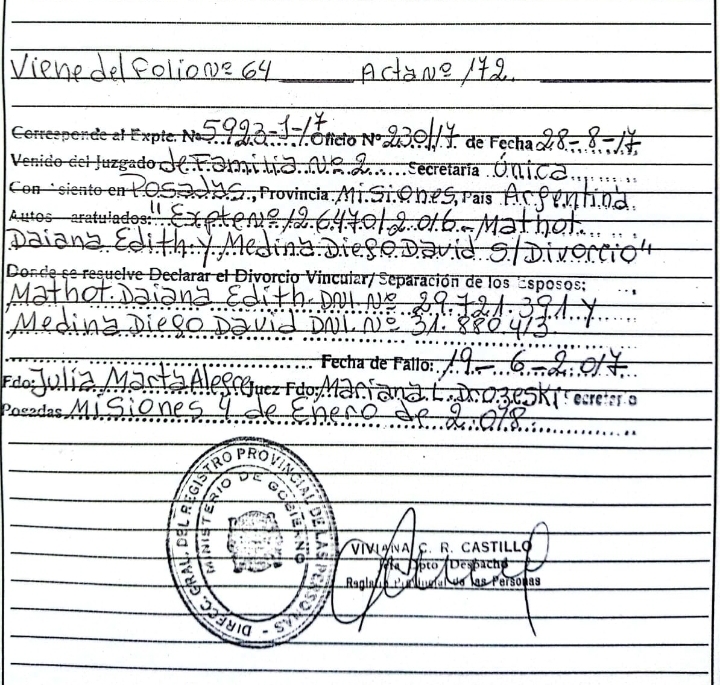 Viene del Folio Nº 64 Acta Nº 172.
Corresponde al Expte. Nº 5923-1-17 Oficio Nº 230/17 de Fecha 28-8-17
Venido del Juzgado de Familia Nº 2 Secretaria Única
Con siento en Posadas, Provincia Misiones, País Argentina
Autos aratulados: "Expte Nº 126470/2.016.- Mathot
Daiana Edith Y Medina Diego David S/Divorcio"
Donde se resuelve Declarar el Divorcio Vincular/Separación de los Esposos:
Mathot Daiana Edith DNI. Nº 29.721.391 Y
Medina Diego David DNI. Nº 31.880.413
Fecha de Fallo: 19-6-2.017
Fdo: Julia Marta Alegre Juez Fdo: Mariana L. Drozeski ecretario
Posadas Misiones 4 de Enero de 2.018
DIRECC. GRAL. DEL REGISTRO PROVINCIAL DE LAS PERSONAS -
MINISTERIO DE GOBIERNO
VIVIANA C. R. CASTILLO
Dpto Despacho
Registro Provincial de las Personas